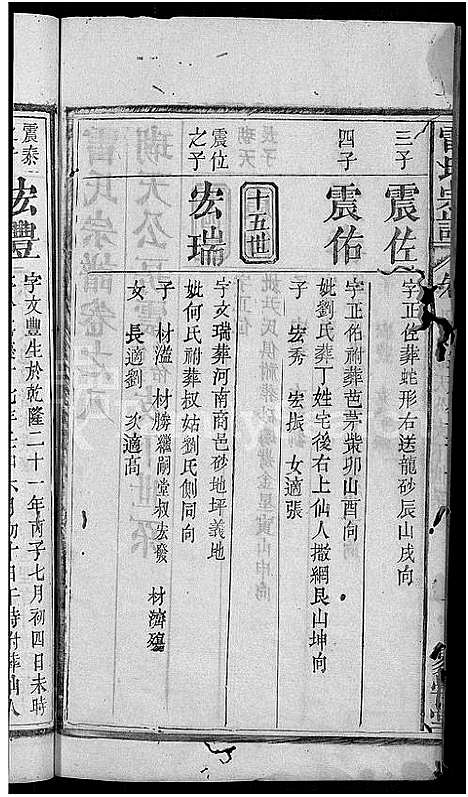 三子
震佐
字正佐葬蛇形右送龍砂辰山戌向
四子
震佑
字正佑祔葬芭茅柴卯山酉向
妣劉氏葬丁姓宅後右上仙人撒網艮山坤向
子 宏秀 宏振 女適張
十五世
震位之子
宏瑞
字文瑞葬河南商邑砂地坪義地
妣何氏祔葬叔姑劉氏側同向
子 材溢 材勝繼嗣堂叔宏發 材濟殤
女 長適劉 次適高
震泰
宏豐
字文豐生於乾隆二十一年丙子七月初四日未時